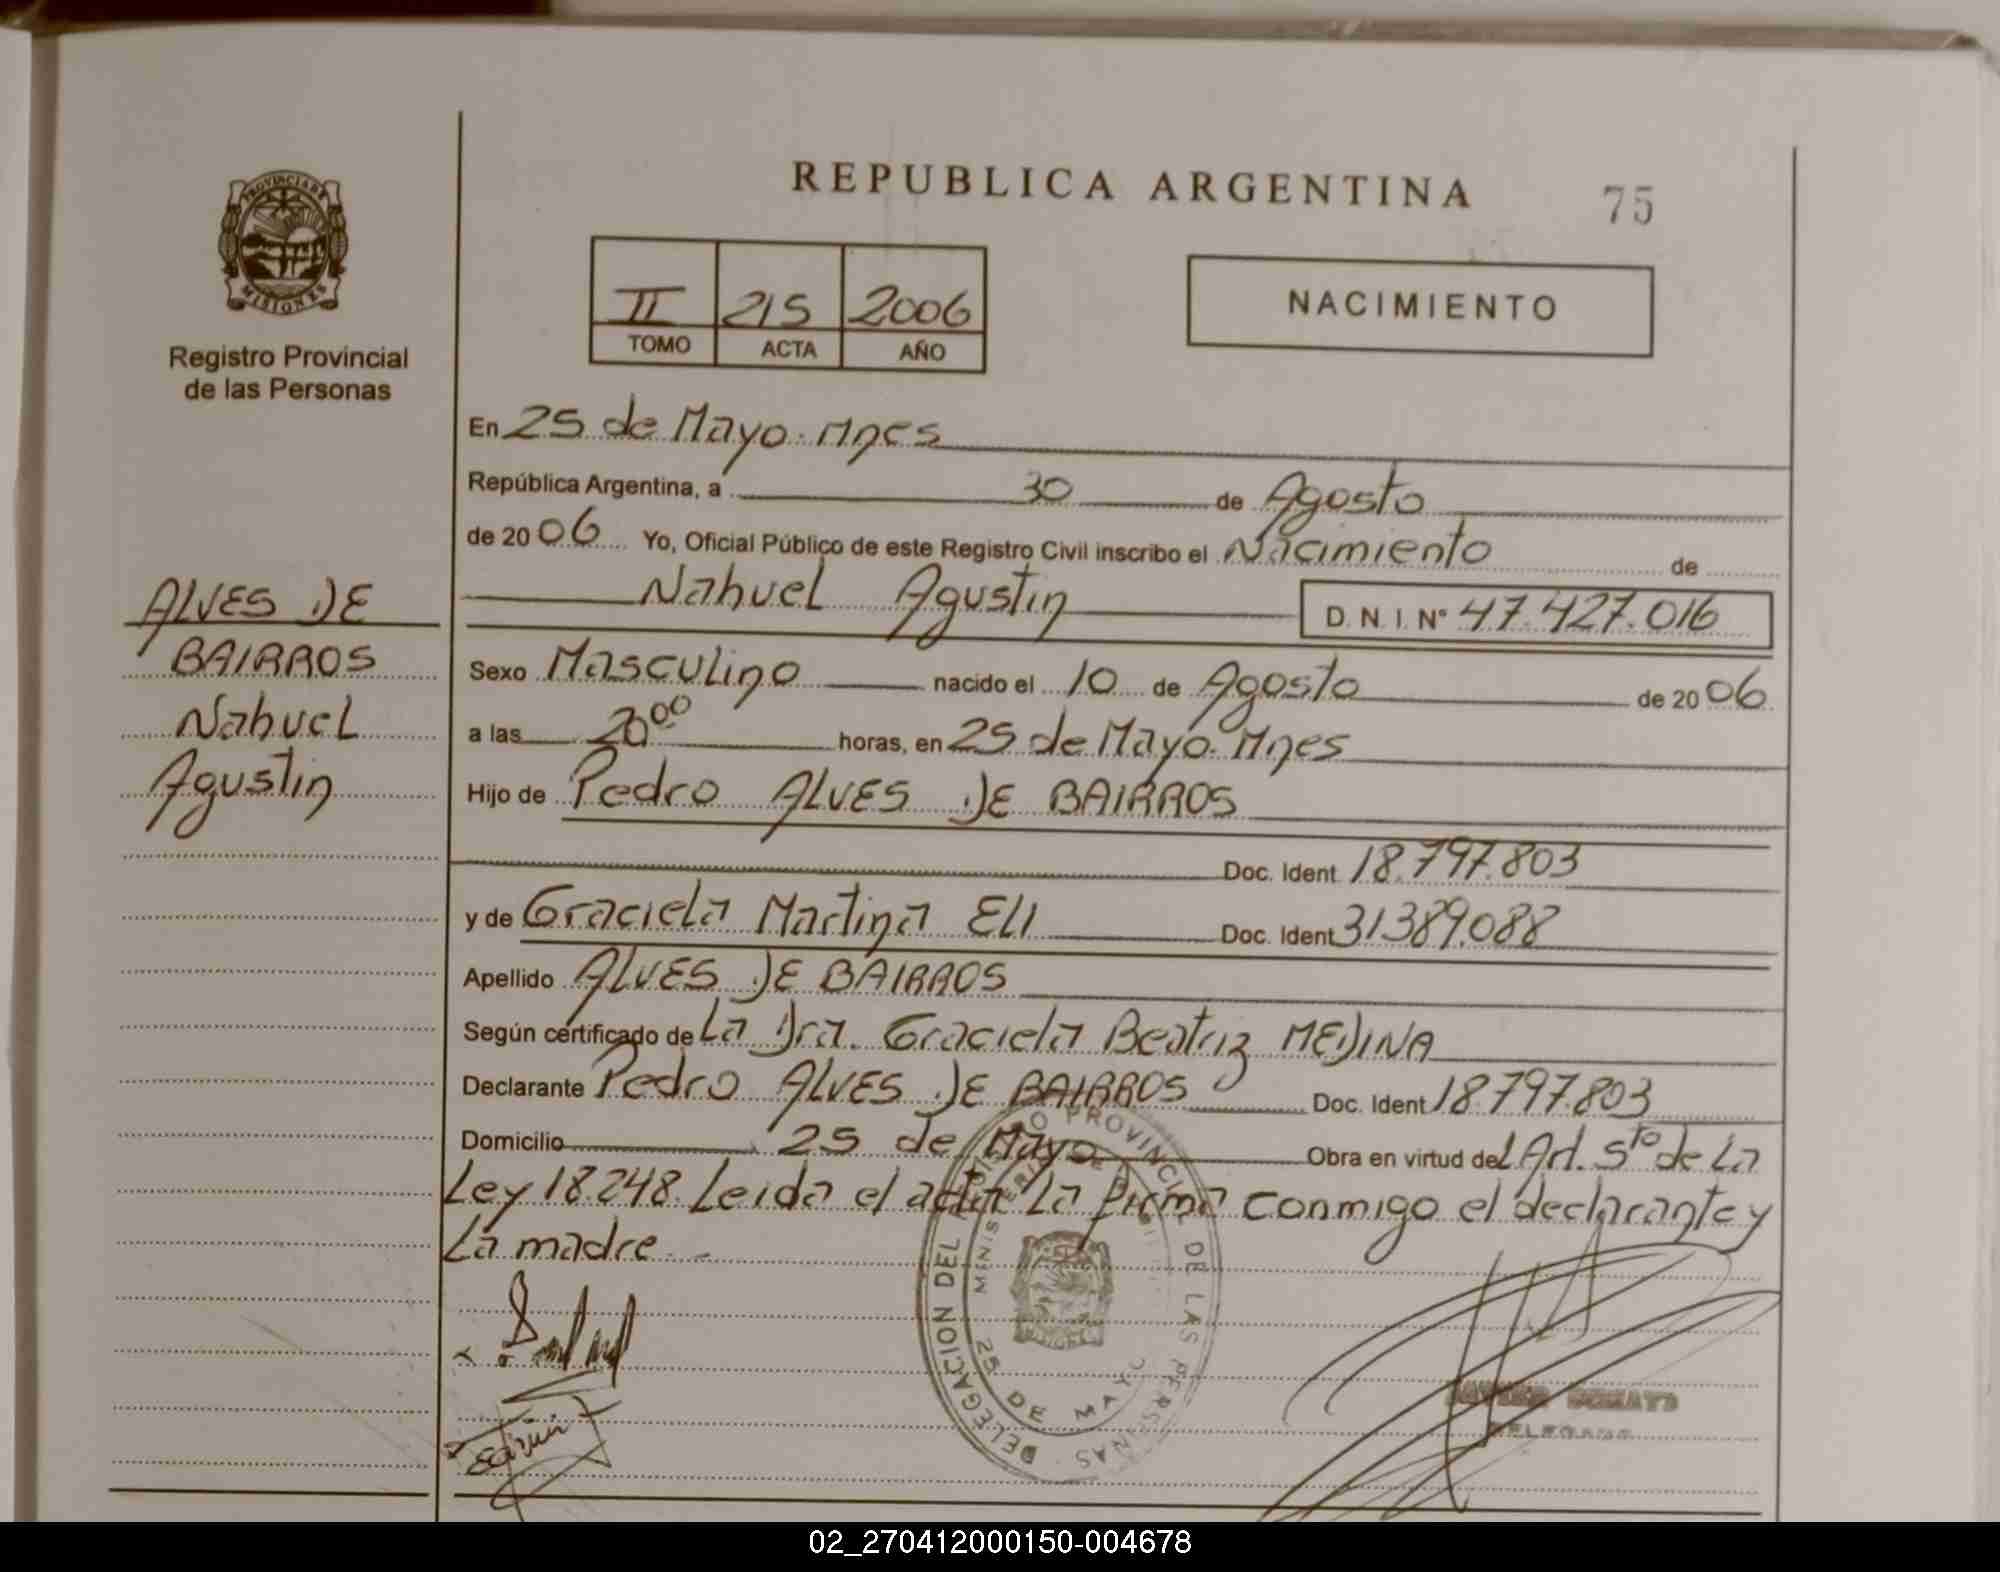 REPUBLICA ARGENTINA
75
PROVINCIA DE
MISIONES
Registro Provincial
de las Personas
II 215 2006
TOMO ACTA AÑO
NACIMIENTO
ALVES DE
BAIRROS
Nahuel
Agustin
En 25 de Mayo. Mnes
República Argentina, a 30 de Agosto
de 2006 Yo, Oficial Público de este Registro Civil inscribo el Nacimiento de
Nahuel Agustin D. N. I. Nº 47.427.016
Sexo Masculino nacido el 10 de Agosto de 2006
a las 20⁰⁰ horas, en 25 de Mayo. Mnes
Hijo de Pedro ALVES DE BAIRROS
Doc. Ident. 18.797.803
y de Graciela Martina ELI Doc. Ident. 31389.088
Apellido ALVES DE BAIRROS
Según certificado de La Dra. Graciela Beatriz MEDINA
Declarante Pedro ALVES DE BAIRROS Doc. Ident. 18.797.803
Domicilio 25 de Mayo Obra en virtud del Art. 5to de La
Ley 18.248. Leida el acta La firma conmigo el declarante y
La madre.
DELEGACION DEL REGISTRO PROVINCIAL DE LAS PERSONAS
25 DE MAYO
MISIONES
DELEGADO
02_270412000150-004678